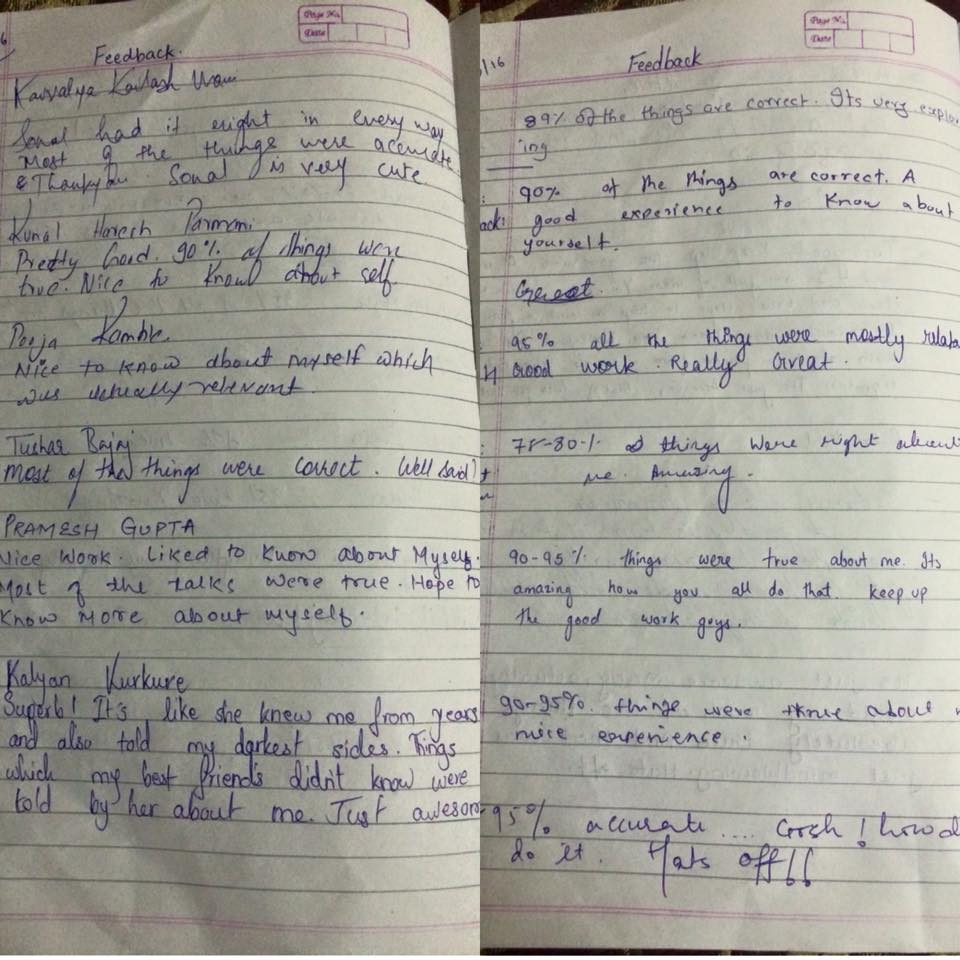 Page No.
Date
6
Feedback.
Kaivalya Kailash
Sonal had it right in every way
Most of the things were accurate
& Thankyou Sonal is very cute
Kunal Haresh
Pretty Good. 90% of things were
true. Nice to know about self
Pooja Kamble.
Nice to know about myself which
was actually relevant.
Tushar Bajaj
most of the things were correct. Well said
PRAMESH GUPTA
Nice work. Liked to know about Myself.
Most of the talks were true. Hope to
know more about myself.
Kalyan Kurkure
Superb! It's like she knew me from years
and also told my darkest sides. Things
which my best friends didn't know were
told by her about me. Just awesom
Page No.
Date
/16
Feedback
89% of the things are correct. Its very explor
ing
90% of the things are correct. A
ack: good experience to know about
yourself.
Great.
95% all the things were mostly relata
Good work. Really Great.
75-80% of things were right about
me. Amazing.
90-95% things were true about me. Its
amazing how you all do that. keep up
the good work guys.
90-95%. things were true about
nice experience.
95% accurate .... Gosh! how d
do it. Hats off!!